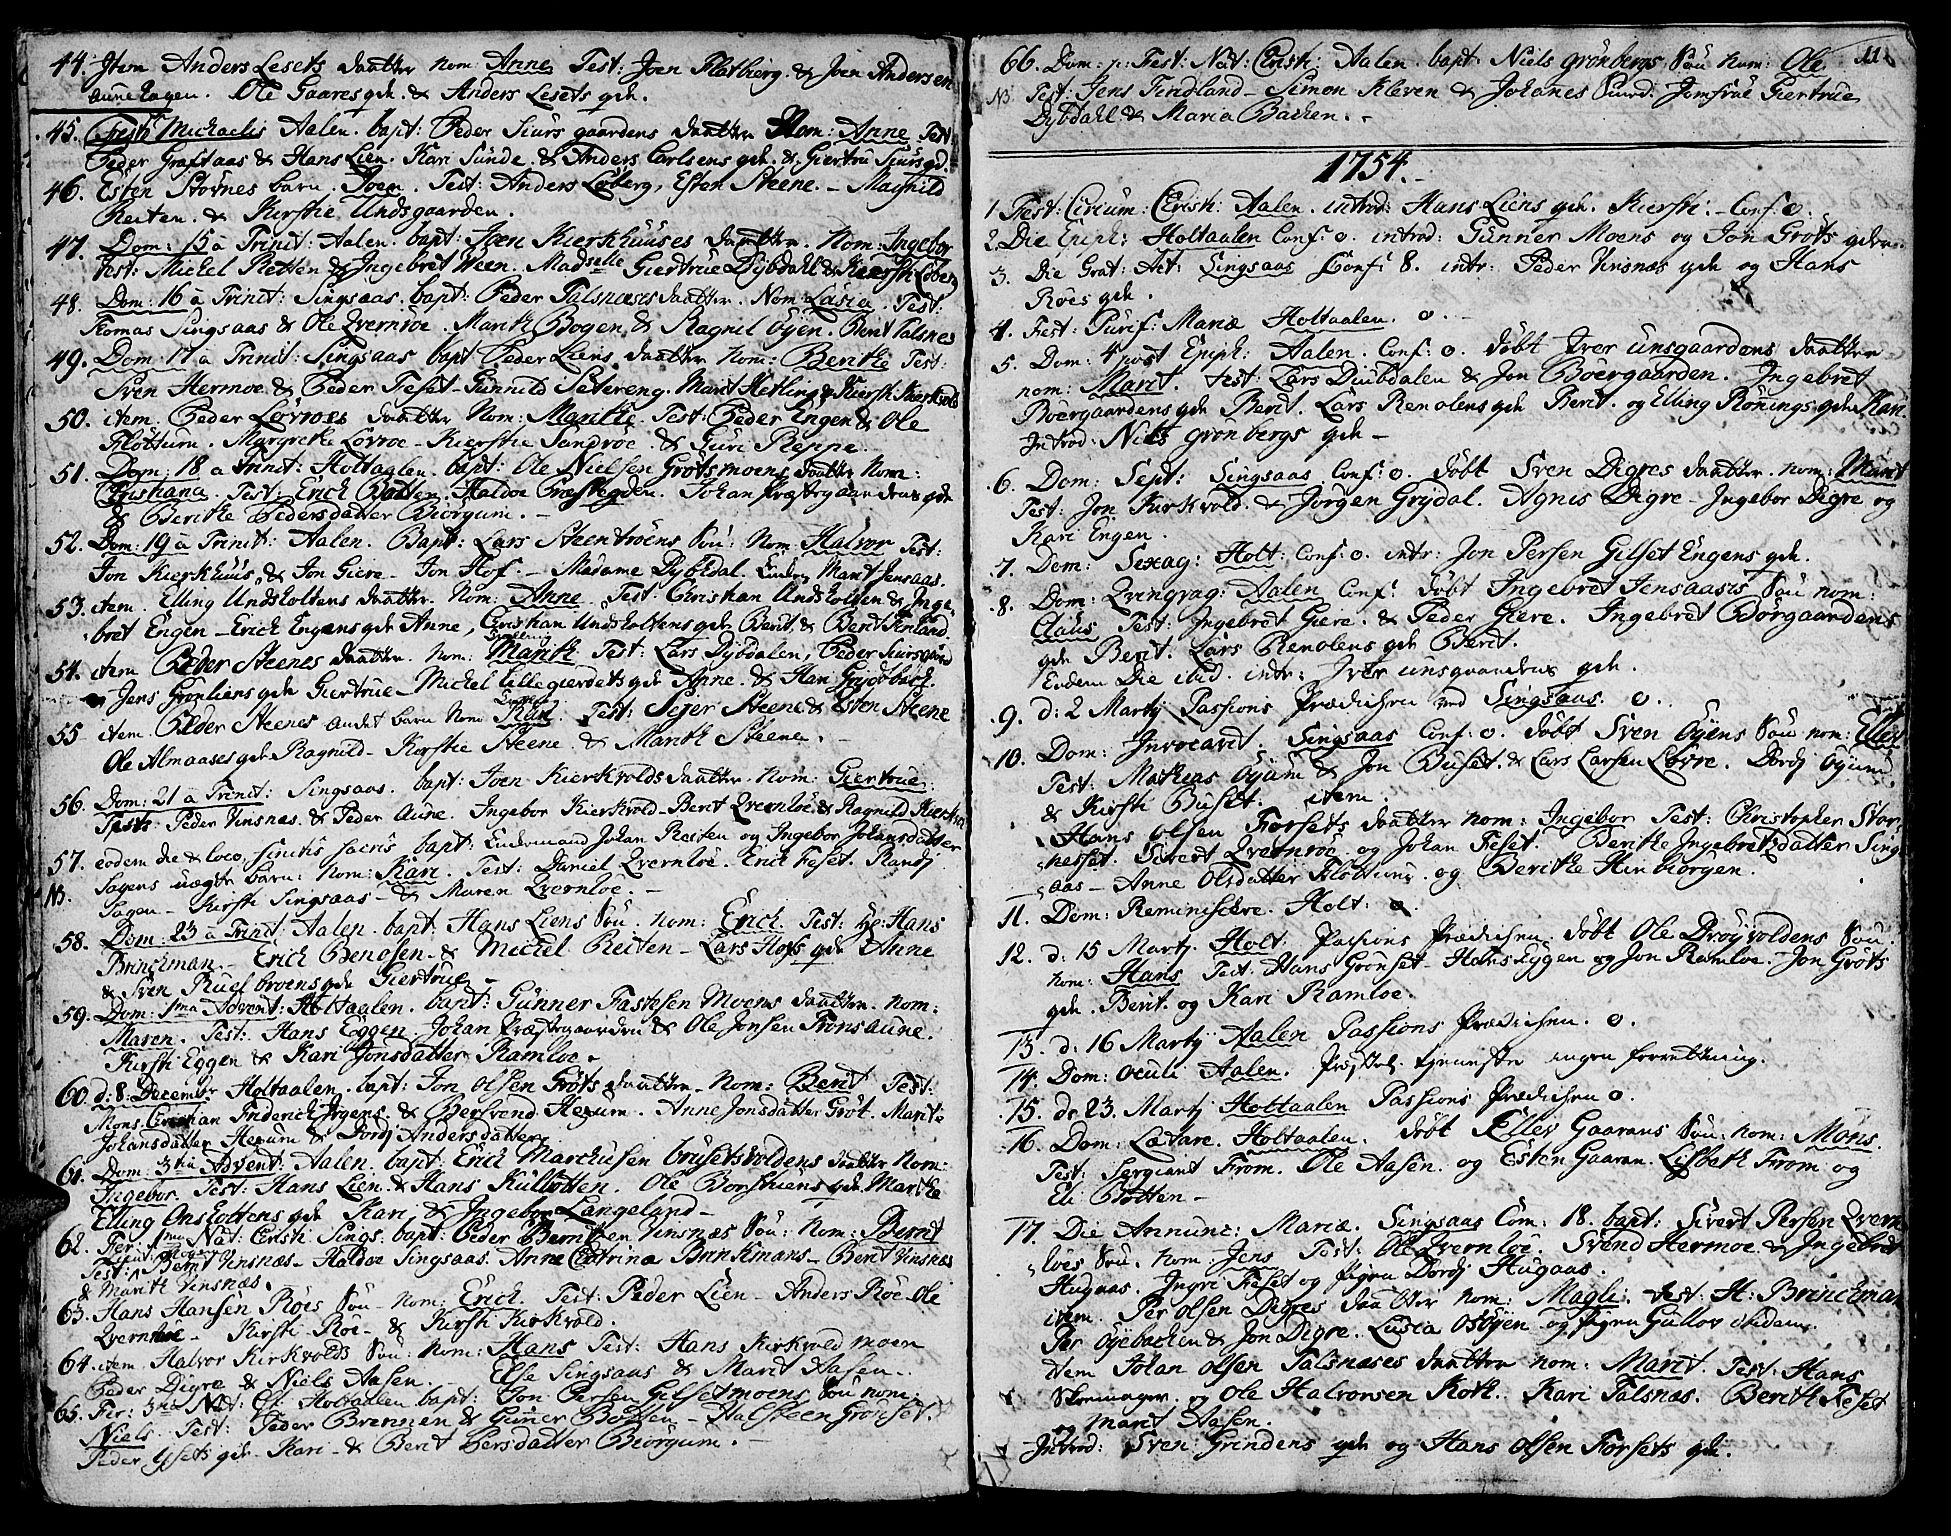 44. Item Anders Lesets daatter nom: Anne Test: Joen Flatbiørg & Joen Andersen
aunehagen. Ole Gaaresgde. & Anders Lesets gde.
45. Festo Michaelis Aalen. bapt: Peder Siurs gaardens daatter Nom: Anne Test:
Peder Graftaas & Hans Lien. Kari Sunde. & Anders Carlsens gde. & Giertru Siursgd.
46. Esten Stovnes barn. Joen. Test: Anders Løberg, Esten Steene. – Magnild
Reiten. & Kirstie Undsgaarden.
47. Dom: 15 a Trinit: Aalen. bapt: Joen Kierkhuuses daatter. Nom: Ingebor
Test: Michel Retten & Ingebret Ween. Madselle Giertrue Dybdahl &
48. Dom: 16 a Trinit: Singsaas. bapt: Peder Talsnæses daatter. Nom: Lusia. Test:
Tomas Singsaas & Ole Qvernroe. Marit Bogen & Ragnil Øyen. Berit Talsnes
49. Dom: 17 a Trinit: Singsaas bapt Peder Liens daatter Nom: Beritte Test:
Sven Hermoe & Peder Feset. Gunnild Setereng. Marit Hetling & Kiersti Kierkvold
50. item. Peder Løvroes daatter Nom: Maritte. Test: Peder Engen & Ole
Flottum. Margrethe Lovroe – Kierstie Sandroe & Guri Reppe.
51. Dom: 18 a Trinit: Holtaalen. bapt: Ole Nielsen Grøtsmoens daatter Nom:
Cristiana. Test: Erich Botten. Haldor Præstegden. Johan Præstegaardens gde
& Beritte Pedersdatter Biørgum. –
52. Dom: 19 a Trinit: Aalen. Bapt: Lars Steentrøens Søn: Nom: Halvor Test:
Jon Kierkhuus, & Jon Giere – Jon Hof. – Madame Dybdal. Marit Jensaas.
53. item. Elling Undsholtens daatter. Nom: Anne. Test: Christian Undsholten & Inge-
bret Engen – Erich Engens gde Anne, Christian Undsholtens gde Berit & Berit Finland
54. item Peder Steenes daatter. Nom: Marith Test: Lars Dybdalen, Peder Siursgaard
Jens Grønliens gde Giertrue – Michel Lillegierdets gde Anne. & Hans Grydsbach.
55 item. Peder Steenes andet barn Nom Kari. Test: Sejer Steene & Esten Steene
Ole Almaases gde Ragnild – Kirstie Steene & Marith Steene. –
56. Dom: 21 a Trinit: Singsaas. bapt: Joen Kierkvolds daatter. Nom: Giertrue.
Test: Peder Vinsnæs. & Peder Aune. Ingebor Kierkvold – Berit Qvernloe & Ragnild
57. eodem die & loco, finitis sacris bapt: Johan Reiten og Ingebor Johansdatter
Sagens uægte barn: Nom: Kari. Test: Daniel Qvernloe. Erich Feset. Randj
NB. Sagen – Kirsti Singsaas – & Maren Qvernloe. –
58. Dom: 23 a Trinit: Aalen. bapt: Hans Liens Søn. Nom: Erich. Test: Hr: Hans
Brinchman – Erich Benosen & Michel Reiten – Lars Hofs gde Anne
& Sven Ruelbroens gde Giertrue –
59. Dom: 1ma Advent: Holtaalen. bapt: Gunner Fastesen Moens daatter. Nom:
Maren. Test: Hans Eggen. Johan Præstegaarden & Ole Jonsen Fronsaune.
Kirsti Eggen & Kari Jonsdatter Ramloe.
60. d: 8. Decembr Holtaalen. bapt: Jon Olsen Grøts daatter – Nom: Berit Test:
Mons. Christian Friderich Irgens & Bersvend Hexum. Anne Jonsdatter Grøt. Marit
Johansdatter Hexum & Dordj Andersdatter.
61. Dom: 3tia Advent: Aalen. bapt: Erich Marchusen brusetvoldens daatter Nom:
Ingebor. Test: Hans Lien. & Hans Kulbotten. Ole Borshiens gde Marithe
Elling Onsholtens gde Kari & Ingebor Langeland –
62. Fer: 1ma Nat: Crist: Sings. bapt: Peder Berntsen Vinsnæs Søn: Nom: Bernt
Test: Bernt Vinsnæs – Haldor Singsaas. Anne Catrina Brinkmans – Berit Vinsnæs
& Marith Vinsnæs.
63. Hans Hansen Røes Søn – Nom: Erich Test: Peder Lien – Anders Røe – Ole
Qvernroe – Kirsti Røe – & Kirsti Kirkvold.
64. item. Halvor Kirkvolds Søn: Nom: Hans Test: Hans Kirkvold moen
Peder Digre & Niels Aasen. – Else Singsaas & Marit Aasen.
65. Fer: 3tia Nat: C: Holtaalen bapt: Jon Persen Gilsetmoens Søn nom:
Niels. Test: Peder Brennen & Guner Botten – Halsteen Grønset.
Peder Gsets gde – Kari – & Berit Persdatter Biørgum. –
66. Dom: p: Fest: Nat: Crist: Aalen. bapt: Niels Grønbergs Søn nom: Ole 11
NB. Test: Jens Findland – Simon Kleven & Johanes Sund. Jomfrue Giertrue
Dybdahl & Maria Backen. –
1754. –
1 Fest: Circum: Crist: Aalen. introd: Hans Liens gde. Kiersti. – Conf: o.
2. Die Epiph: Holtaalen Conf: o. introd: Gunner Moens og Jon Grøts gder.
3. Die Grat: Act: Singsaas Conf: 8. intr: Peder Vinsnæs gde og Hans
Røes gde.
4. Fest: Purif: Mariæ Holtaalen. o. –
5. Dom: 4 post Epiph: Aalen. Conf: o. døbt Iver unsgaardens daatter
nom: Marit. test: Lars Diubdalen & Jon Boergaarden. Ingebret
Boergaardens gde Berit. Lars Renolens gde Berit. og Elling Rønings gde Kari
Introd: Niels grønbergs gde –
6. Dom: Sept: Singsaas Conf: o. døbt Sven Digres daatter. nom: Marit
Test: Jon Kirkvold. & Jørgen Grydal. Agnis Digre – Ingebor Digre og
Kari Engen.
7. Dom: Sexag: Holt: Conf: o. intr: Jon Persen Gilset Engens gde.
8. Dom: Qvinqvag: Aalen Conf: døbt Ingebret Jensaasis Søn nom:
Claus Test: Ingebret Giere. & Peder Giere. Ingebret Borgaardens
gde Berit. Lars Renolens gde Berit.
Eodem Die ibid. intr: Iver unsgaardens gde.
9. d: 2 Martij Passions Prædichen ved Singsaas. o.
10. Dom: Invocavit. Singsaas Conf: o. døbt Sven Øyens Søn nom: Ellef
Test: Mathias Øyum & Jon Buset. & Lars Larsen Løvre. Dordj Øyum
& Kirsti Buset. item.
Hans Olsen Forsets daatter nom: Ingebor Test: Christopher Stor
nesset. Sivert Qvernroe og Johan Feset. Berithe Ingebretsdatter Sing
aas – Anne Olsdatter Flottum. og Berithe Hinbiørgen.
11. Dom: Reminiscere. Holt: o.
12. d: 15 Martij. Holt. Pasions Prædichen. døbt Ole Drøyvoldens Søn.
nom: Hans Test: Hans Grønset – Hans Eggen og Jon Ramloe. Jon Grøts
gde. Berit. og Kari Ramloe.
13. d: 16 Martij Aalen Passions Prædichen. o.
14. Dom: Oculi Aalen. tjeneste ingen forrettning.
15. d: 23. Martij Holtaalen Passions Prædichen o.
16. Dom: Lætare. Holtaalen. døbt Ellev Gaarans Søn: nom: Mons.
Test: Sergiant From. Ole Aasen. og Esten Gaaran. Lisbeth From og
Eli Botten –
17. Die Annunc: Mariæ. Singsaas Com: 18. bapt: Sivert Persen Qvern
loes Søn. Nom Jens Test: Ole Qvernloe. Svend Hermoe. & Ingebret
Hugaas. Ingri Feset og pigen Dordj Hugaas.
item. Per Olsen Digres daatter nom: Magli. test: H: Brinckman
Per Øyebachen & Jon Digre. Lusia Osøyen og pigen Gullov ibidem.
item Johan Olsen Talsnæses daatter nom: Marit. Test: Hans
Skomager. og Ole Halvorsen Koth. Kari Talsnæs. Berith Feset
og Marit Aasen.
Introd: Sven Grindens gde og Hans Olsen Forsets gde.